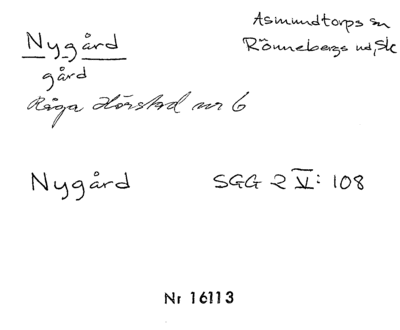 Nygård
gård
Råga Hörstad nr 6
Asmundtorps sn
Rönnebergs hd, Sk
Nygård
SGG 2 V: 108
Nr 16113